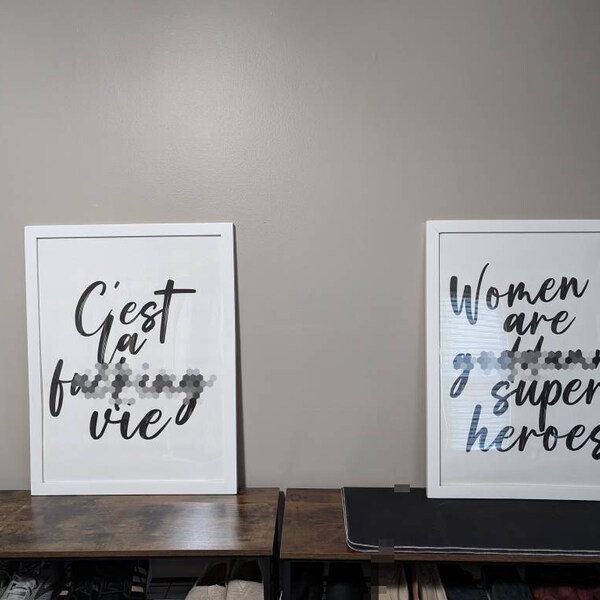 C'est
la
vie
Women
are
super
heroes